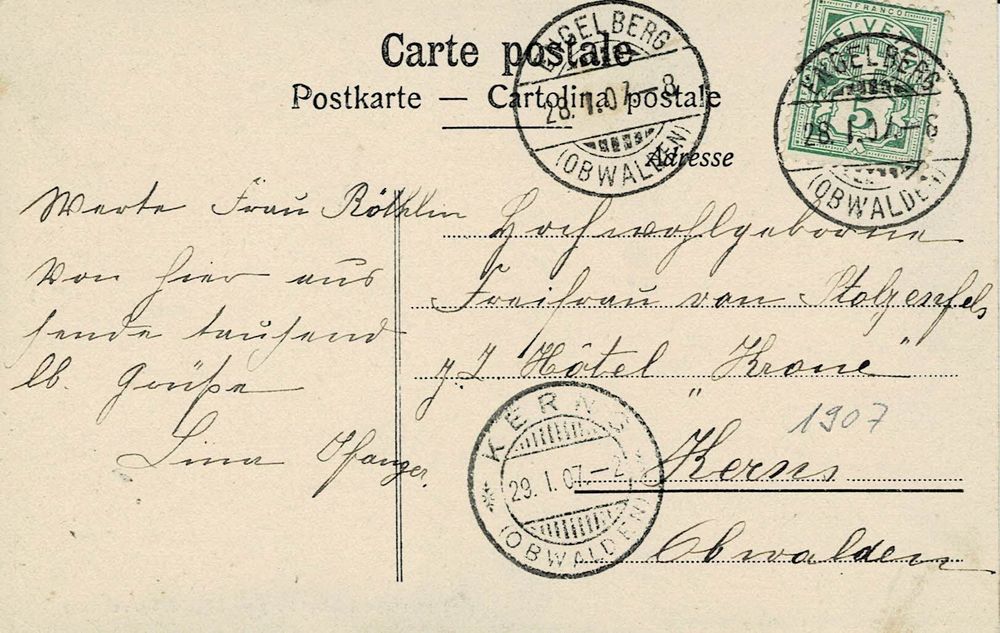 Carte postale
Postkarte — Cartolina postale
Adresse
ENGELBERG
28. I. 07.–8
(OBWALDEN)
FRANCO
HELVETIA
5
ENGELBERG
28. I. 07.–8
(OBWALDEN)
Werte Frau Röthlin
Von hier aus
sende tausend
lb. Grüße
Lina
Hochwohlgeborne
Freifrau von Stolzenfels
z. Z. Hôtel "Krone"
1907
Kerns
Obwalden
KERNS
29. I. 07.–2
(OBWALDEN)